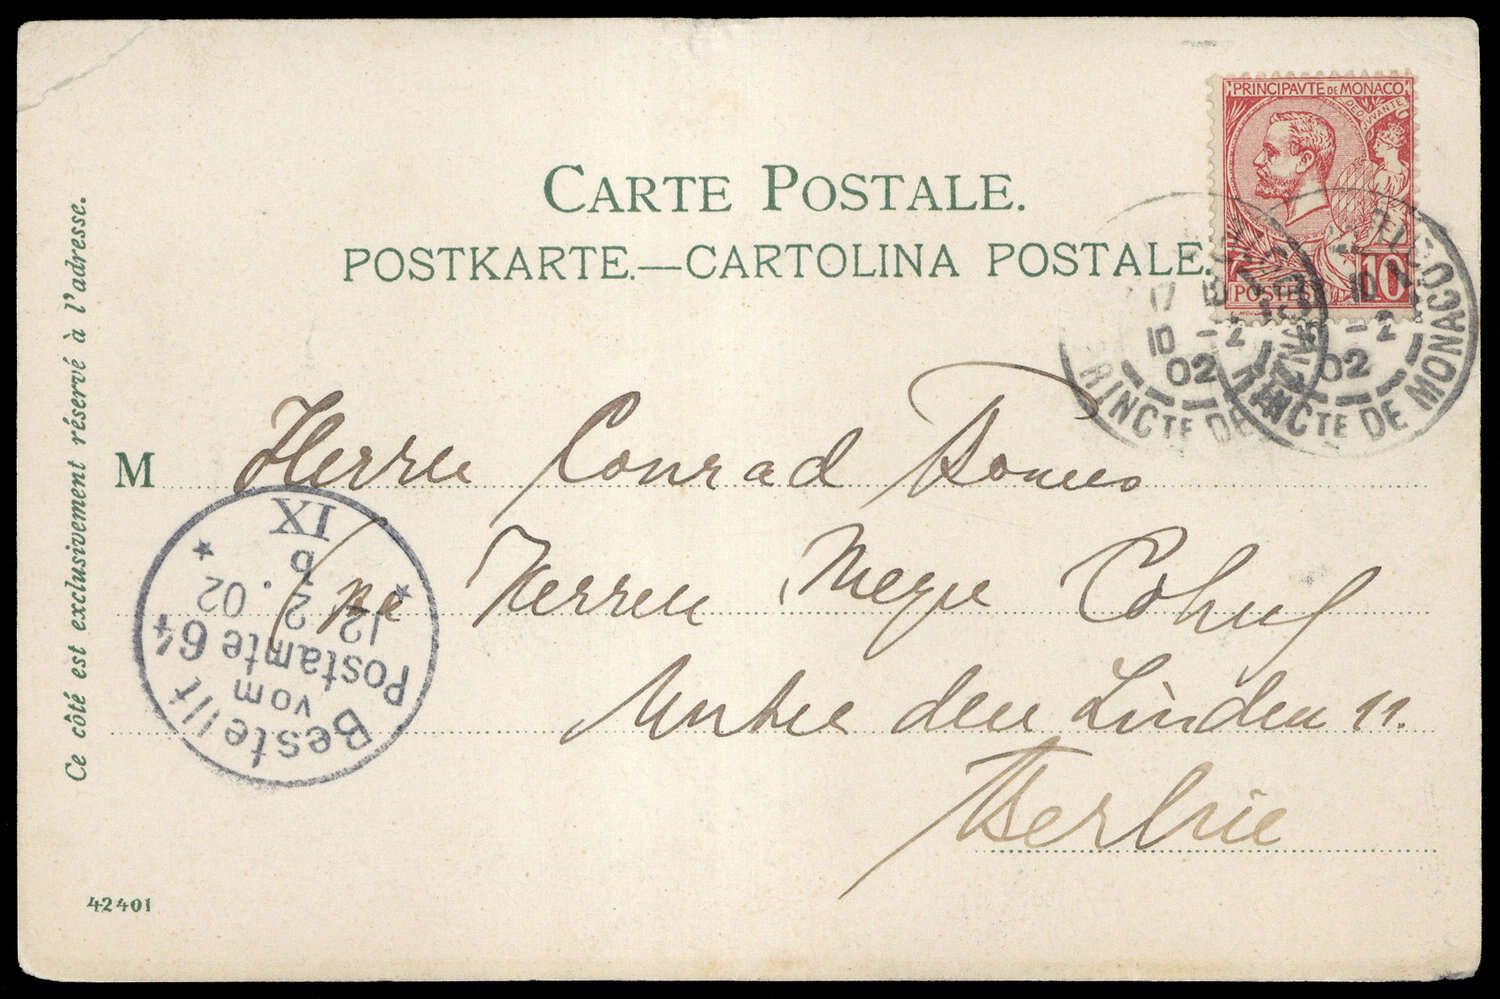 PRINCIPAVTE DE MONACO
DEO JUVANTE
POSTES 10
CARTE POSTALE.
POSTKARTE.—CARTOLINA POSTALE.
17
10 -2
02
PRINCTE DE
10 -2
02
PRINCTE DE MONACO
Ce côté est exclusivement réservé à l'adresse.
M Herrn Conrad
Herren Meyer
Unter den Linden 11.
Berlin
Bestellt
vom
Postamte 64
12. 2. 02
IX
42401